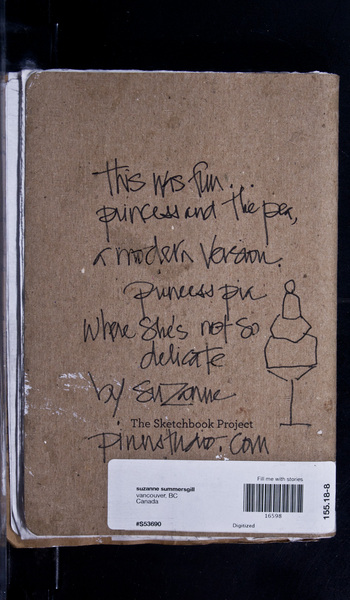 this was fun...
princess and the pea,
a modern version.
princess pia
where she's not so
delicate
by suzanne
The Sketchbook Project
pinestudio.com
Fill me with stories
suzanne summersgill
vancouver, BC
Canada
16598
#S53690
Digitized
155.18-8